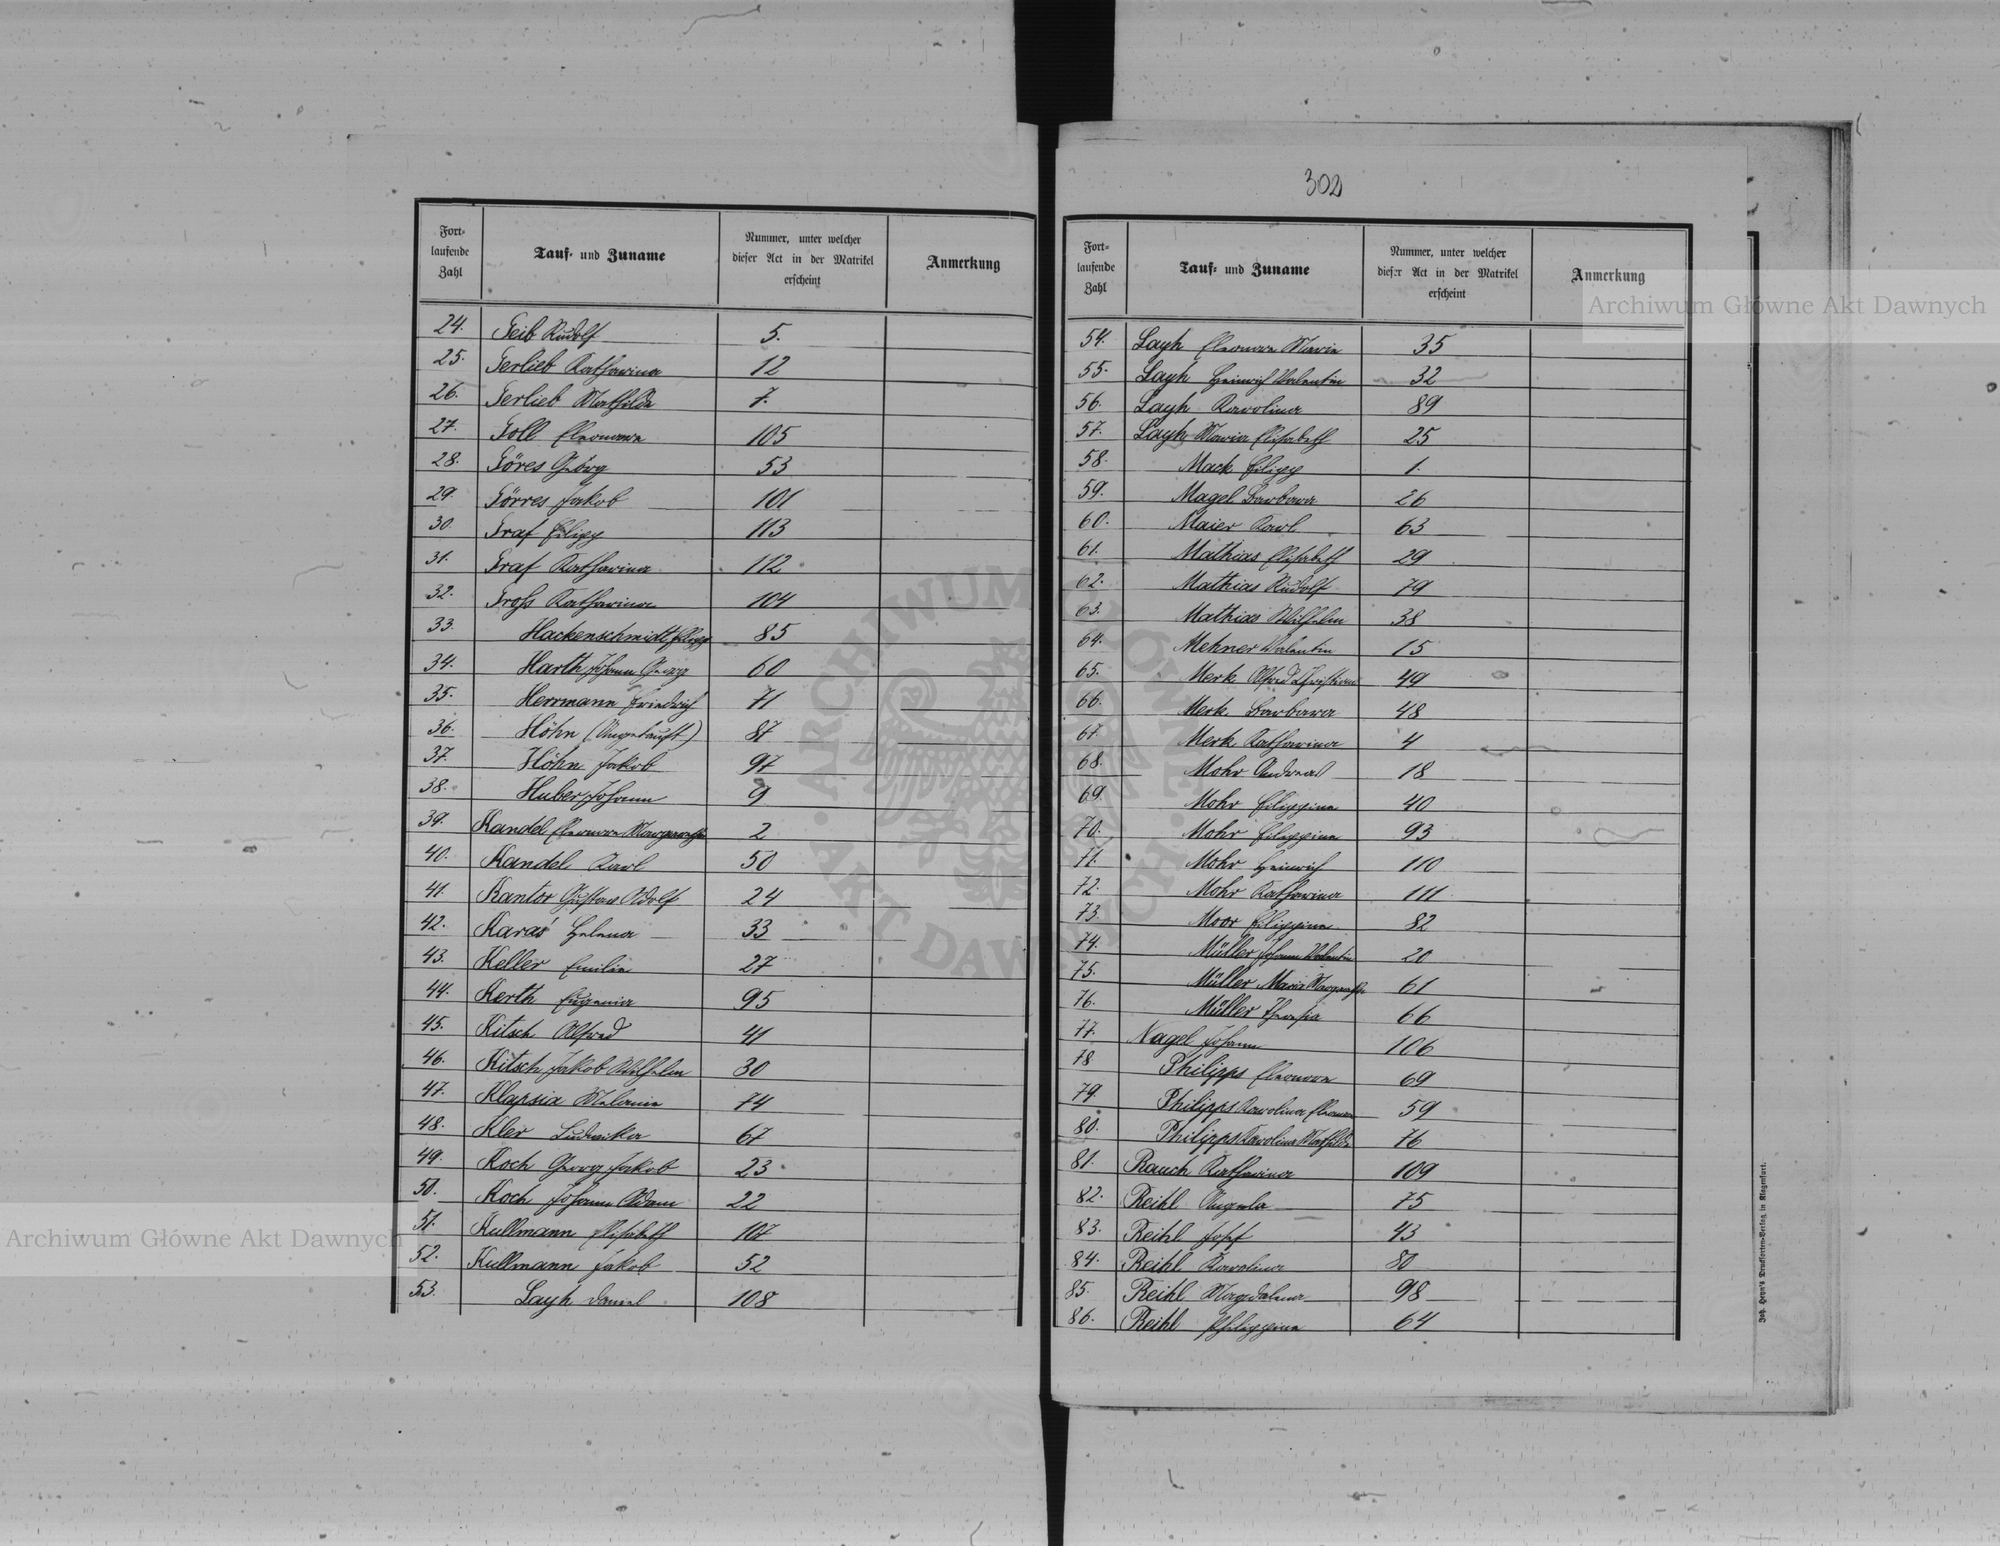 302
Fort-
laufende
Zahl
Tauf- und Zuname
Nummer, unter welcher
dieser Act in der Matrikel
erscheint
Anmerkung
24. Geib Rudolf 5.
25. Gerlieb Katharina 12
26. Gerlieb Mathilde 7.
27. Goll Eleonore 105
28. Göres Georg 53
29. Görres Jakob 101
30. Graf Filipp 113
31. Graf Katharina 112
32. Groß Katharina 104
33. Hackenschmidt Filipp 85
34. Harth Johann Georg 60
35. Herrmann Friedrich 71
36. Höhn (Ungetauft) 87
37. Höhn Jakob 97
38. Huber Johann 9
39. Kandel Eleonore Margarethe 2
40. Kandel Karl 50
41. Kantor Gustav Adolf 24
42. Karaś Helena 33
43. Keller Emilie 27
44. Kerth Eugenia 95
45. Kitsch Alfred 41
46. Kitsch Jakob Wilhelm 30
47. Klapsia Melanie 74
48. Kler Ludwika 67
49. Koch Georg Jakob 23
50. Koch Johann Adam 22
51. Kullmann Elisabeth 107
52. Kullmann Jakob 52
53. Layh Daniel 108
Fort-
laufende
Zahl
Tauf- und Zuname
Nummer, unter welcher
dieser Act in der Matrikel
erscheint
Anmerkung
54. Layh Eleonore Marie 35
55. Layh Heinrich Valentin 32
56. Layh Karolina 89
57. Layh Maria Elisabeth 25
58. Mack Filipp 1.
59. Magel Barbara 26
60. Maier Karl 63
61. Mathias Elisabeth 29
62. Mathias Rudolf 79
63. Mathias Wilhelm 38
64. Mehner Valentin 15
65. Merk Alfred Christian 49
66. Merk Barbara 48
67. Merk Katharina 4
68. Mohr Andreas 18
69. Mohr Filippine 40
70. Mohr Filippine 93
71. Mohr Heinrich 110
72. Mohr Katharina 111
73. Moor Filippine 82
74. Müller Johann Valentin 20
75. Müller Maria Margarethe 61
76. Müller Theresia 66
77. Nagel Johann 106
78 Philipps Eleonore 69
79. Philipps Karolina Eleonore 59
80. Philipps Karolina Mathilde 76
81. Rauch Katharina 109
82. Reihl Angela 75
83. Reihl Josef 43
84. Reihl Karolina 80
85. Reihl Magdalena 98
86. Reihl Philippine 64
Joh. Heyn's Drucksorten-Verlag in Klagenfurt.
Archiwum Główne Akt Dawnych
Archiwum Główne Akt Dawnych
ARCHIWUM GŁÓWNE
AKT DAWNYCH